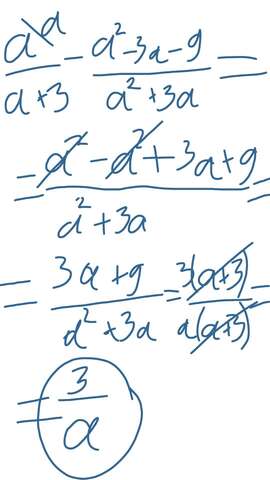 a\a/(a+3) - (a²-3a-9)/(a²+3a) =
= (a²-a²+3a+9)/(a²+3a) =
= (3a+9)/(a²+3a) = 3(a+3)/a(a+3) =
= 3/a